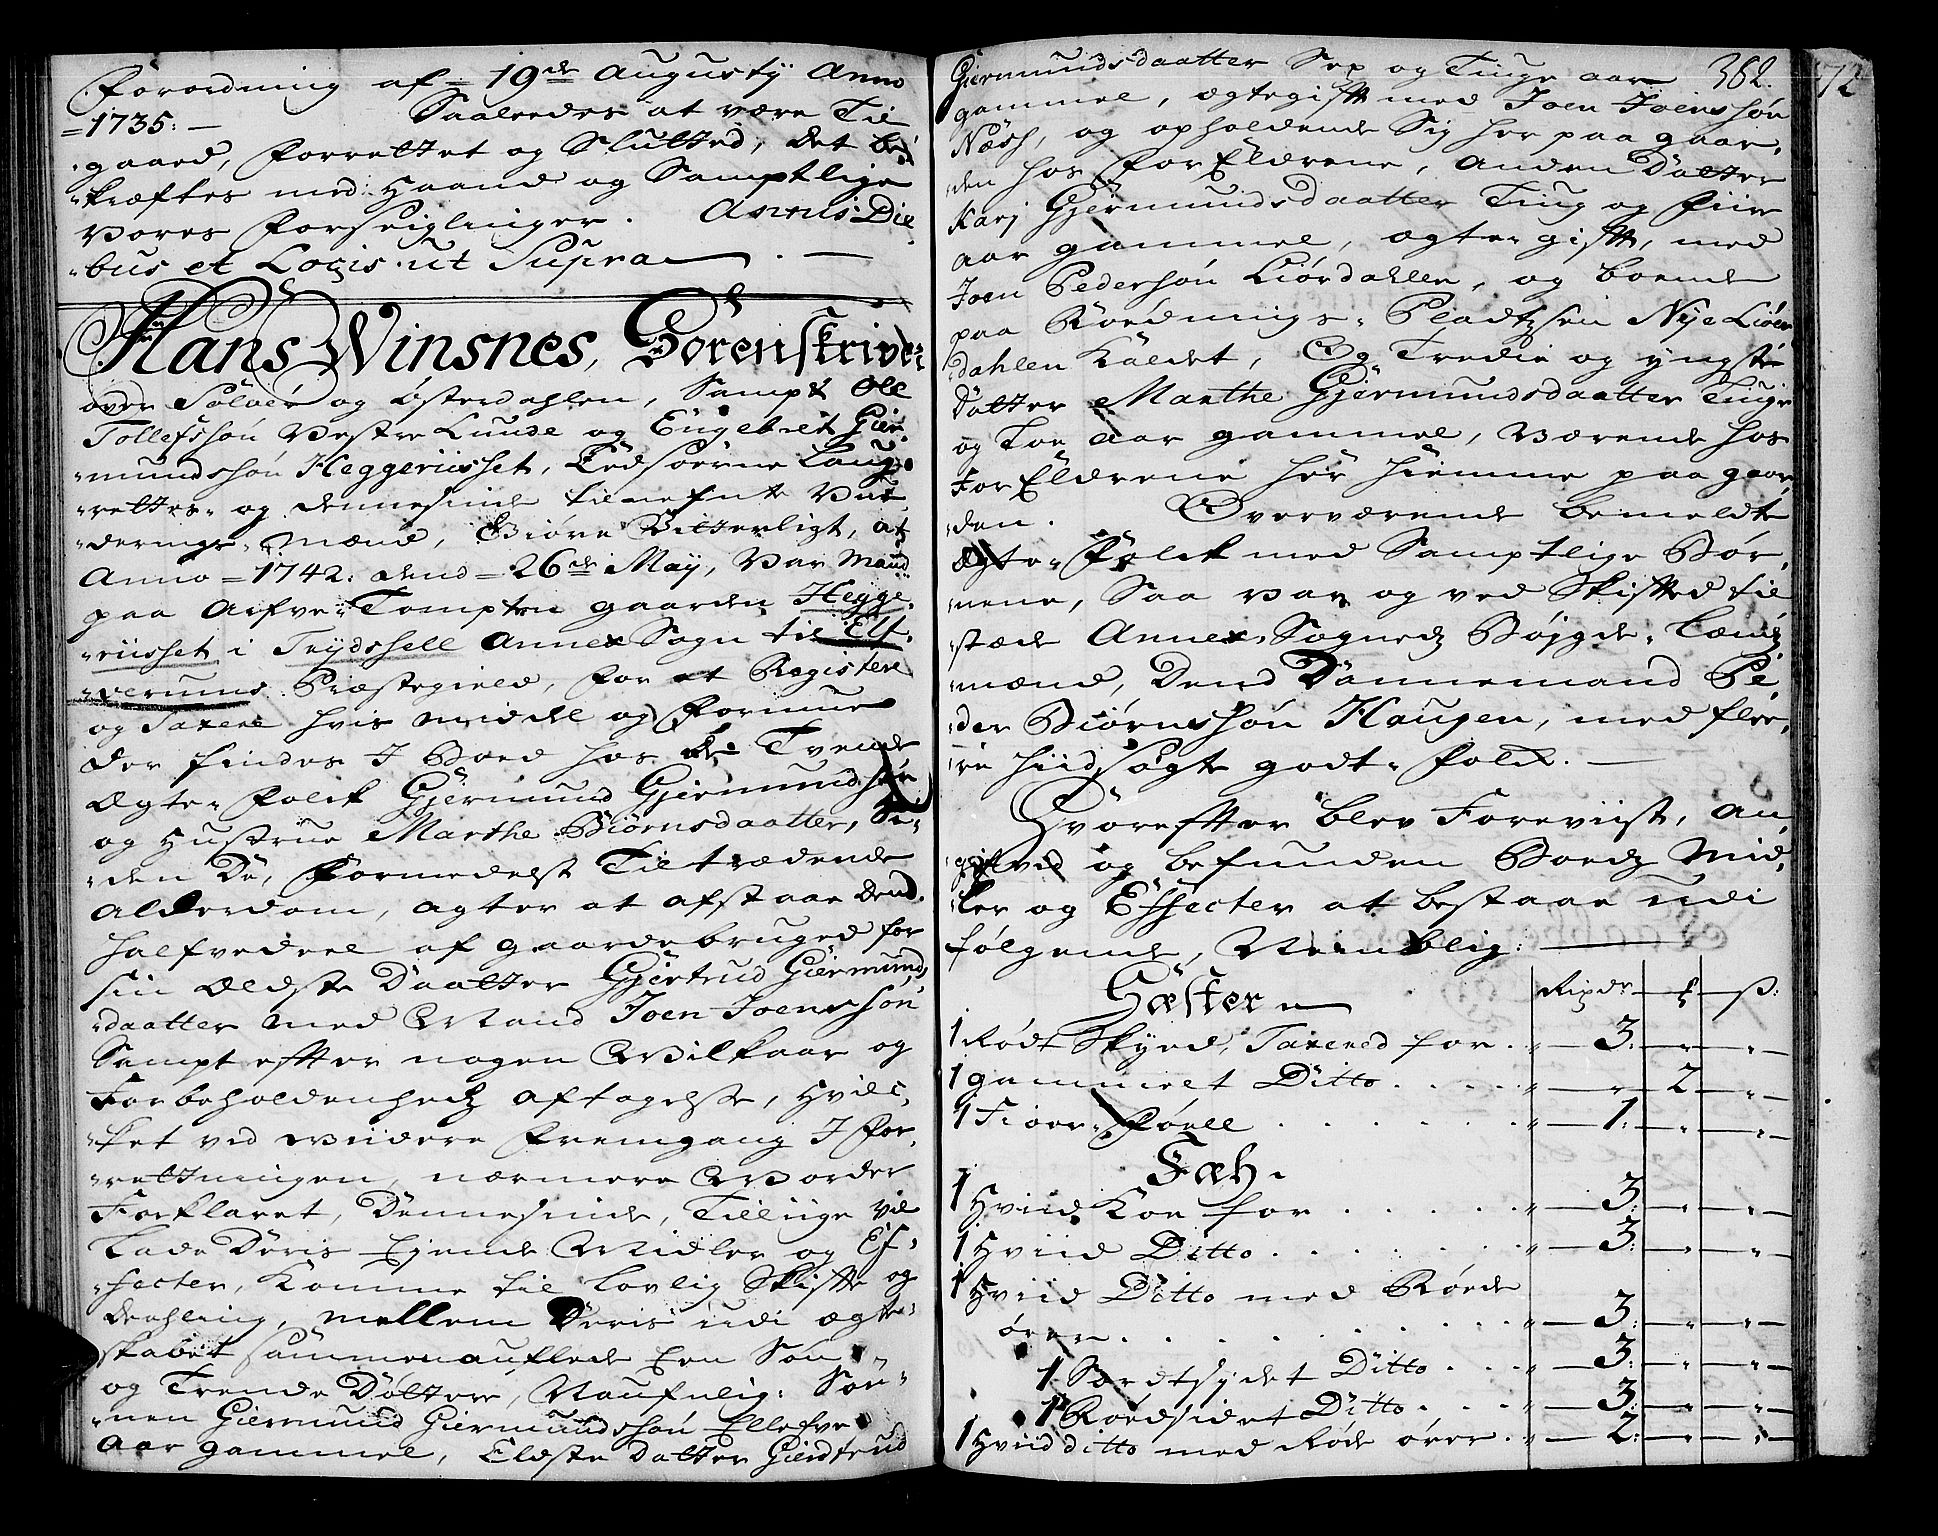 Forordning af 19de Augusty Anno
=1735: — Saaledes at være Til
gaaed, forrettet og Slutted, det be
kræftes med Haand og Samptlige
vores forseiglinger. Annis Die
bus et Locis ut Supra —
Hans Winsnes, Sorenskriver
over Soløer og Østerdahlen, Sampt Ole
Tollefssøn Vestre Lunde og Engebret Gier
mundssøn Heggeriisset, Eedsoerne Laug
rettes- og dennesinde tilnefnte Vur
derings-Mænd, Giøre Vitterligt, at
Anno =1742: dend =26de May, Var Mand
paa Arfve-Tompten gaarden Hegge
riisset i Trydssell Annex Sogn til Elf
verums Præstegield, for at Registere
og Taxere hvis middel og formue
der findes I Boed hos de Tvende
Ægte-folck Gjermund Gjermundssøn
og Hustrue Marthe Biørnsdaatter, Si
den De, formedelst Tiltrædende
Alderdom, agter at afstaae Dend
halfvedeel af gaardebruged for
sin Ældste Daatter Gjertrud Giermunds
daatter med Mand Joen Joenssøn
Sampt efter nogen Wilkaar og
Forbeholdenhedz aftagelse, Hvil
ket ved widere fremgang I for
rettningen nærmere Worder
Forklaret, Dennesinde, Tilliige vil
Lade Deris Ejende Midler og Ef
fecter, Komme til lovlig Skifte og
deehling, mellem Deris udi ægte
skabet sammenauflede Een Søn
og Trende Døttre, Naufnlig: Søn
nen Giermund Giermundssøn Ellefve
aar gammel, Eldste Datter Giertrud
Giermundsdaatter Sex og Tiuge aar 362.
gammel, ægtegift med Joen Joenssøn
Næss, og opholdende Sig her paa gaar
den hos forEldrene, anden Datter
Karj Gjermundsdaatter Tiug og fiire
aar gammel, ægte-gift, med
Joen Pedersøn Liørdahlen, og boende
paa Rødnings-Pladtzen Nye Liør
dahlen Kaldet, Og Tredie og yngste
Datter Marthe Gjermundsdaatter Tiuge
og Toe aar gammel, værende hos
ForEldrene her hiemme paa gaar
den. Overværende bemeldte
Ægte-folck med Samptlige Bør
nene, Saa var og ved Skifted til
stæde Annex-Sognedz Bøjgde-Lændz
mænd, Dend Dannemand Pe
der Biørnssøn Haugen, med flee
re hiidsøgte godt-folck. —
Hvorefter blev Foreviist, an
givet og befunden Boedz Mid
ler og Effecter at bestaae udi
følgende, Nemblig: —
Hæster Rixdr ß:
1 Rødt Skyed, Taxered for . 3: " "
1 gammelt Ditto . . . " 2 "
1 Fioer-føell . . . 1: " "
Fæh.
1 Hviid Koe for . . . 3: " "
1 Hviid Ditto . . . 3: " "
1 Hviid Ditto med Røede
ører . . . 3: " "
1 Sortsidet Ditto . . . 3: " "
1 Rødsidet Ditto . . . 3: " "
1 Hviid ditto med Røde ører . 2: " "